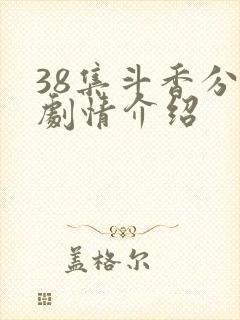 38集斗香分
劇情介绍
盖格尔